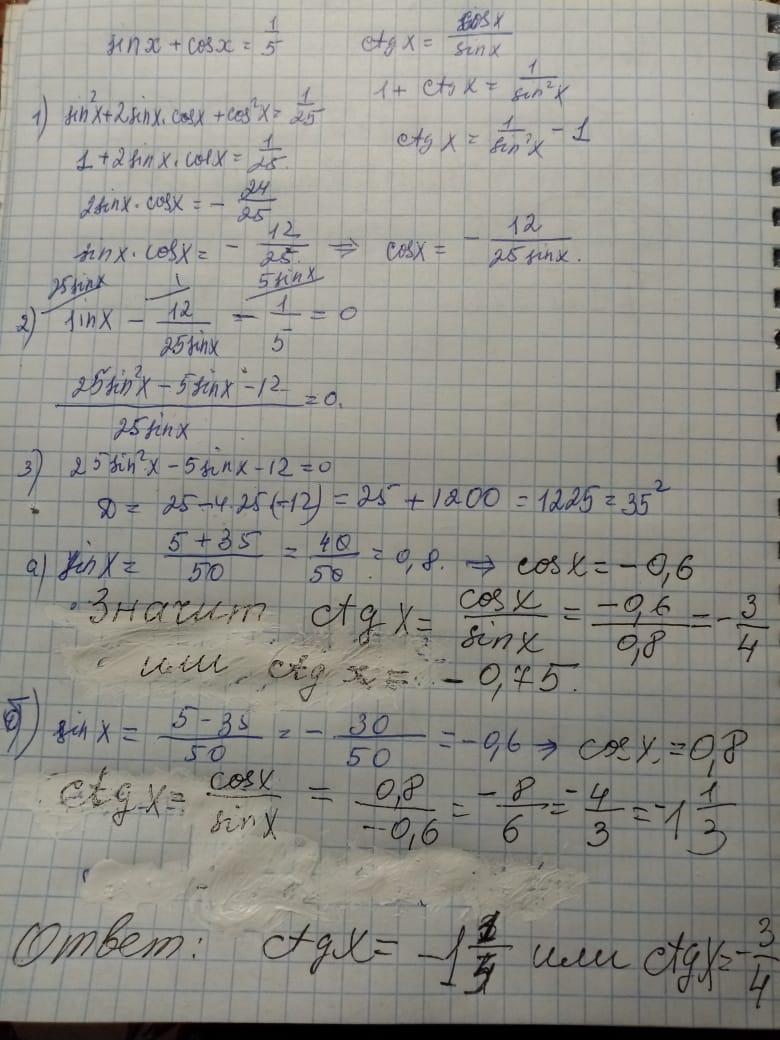 sinx + cosx = 1/5
ctgx = cosx/sinx
1 + ctgx = 1/sin²x
ctgx = 1/sin²x - 1
1) sin²x + 2sinx · cosx + cos²x = 1/25
1 + 2sinx · cosx = 1/25
2sinx · cosx = - 24/25
sinx · cosx = - 12/25 ⇒ cosx = - 12/25sinx.
25sinx 1 5sinx
2) sinx - 12/25sinx - 1/5 = 0
25sin²x - 5sinx - 12/25sinx = 0.
3) 25sin²x - 5sinx - 12 = 0
D = 25 - 4·25·(-12) = 25 + 1200 = 1225 = 35²
а) sinx = 5 + 35/50 = 40/50 = 0,8. ⇒ cosx = - 0,6
Значит ctgx = cosx/sinx = -0,6/0,8 = - 3/4
или ctgx = - 0,75.
б) sinx = 5 - 35/50 = - 30/50 = -0,6 ⇒ cosx = 0,8
ctgx = cosx/sinx = 0,8/-0,6 = -8/6 = -4/3 = -1 1/3
Ответ: ctgx = -1 1/3 или ctgx = - 3/4